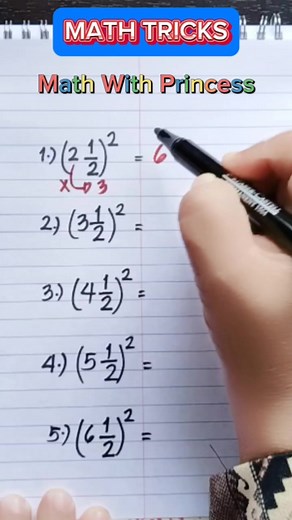 MATH TRICKS
Math With Princess
1.) (2 1/2)² = 6
x 3
2.) (3 1/2)² =
3.) (4 1/2)² =
4.) (5 1/2)² =
5.) (6 1/2)² =